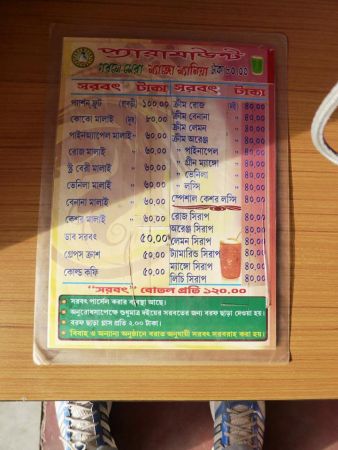 প্যারামাউন্ট
সরবৎ টাকা
প্যাশন ফ্রুট (রাবড়ী) ১০০.০০
কোকো মালাই ৮০.০০
পাইনঅ্যাপেল মালাই " ৬০.০০
রোজ মালাই " ৬০.০০
স্ট্র বেরী মালাই " ৬০.০০
ভেনিলা মালাই " ৬০.০০
বেনানা মালাই " ৬০.০০
কেশর মালাই " ৬০.০০
ডাব সরবৎ ৫০.০০
গ্রেপস্ ক্রাশ ৫০.০০
কোল্ড কফি ৫০.০০
সরবৎ টাকা
ক্রীম রোজ ৪০.০০
ক্রীম বেনানা " ৪০.০০
ক্রীম লেমন " ৪০.০০
ক্রীম অরেঞ্জ " ৪০.০০
" পাইনাপেল " ৪০.০০
" গ্রীন ম্যাঙ্গো " ৪০.০০
" ভেনিলা " ৪০.০০
" লস্সি " ৪০.০০
স্পেশাল কেশর লস্সি ৪০.০০
রোজ সিরাপ ৪০.০০
অরেঞ্জ সিরাপ ৪০.০০
লেমন সিরাপ ৪০.০০
ট্যামারিন্ড সিরাপ ৪০.০০
ম্যাঙ্গো সিরাপ ৪০.০০
লিচি সিরাপ ৪০.০০
"সরবৎ" বোতল প্রতি ১২০.০০
সরবৎ পার্সেল করার ব্যবস্থা আছে।
অনুরোধসাপেক্ষে শুধুমাত্র দইয়ের সরবতের জন্য বরফ ছাড়া দেওয়া হয়।
বরফ ছাড়া গ্লাস প্রতি ২.০০ টাকা।
বিবাহ ও অন্যান্য অনুষ্ঠানে বরাত অনুযায়ী সরবৎ সরবরাহ করা হয়।